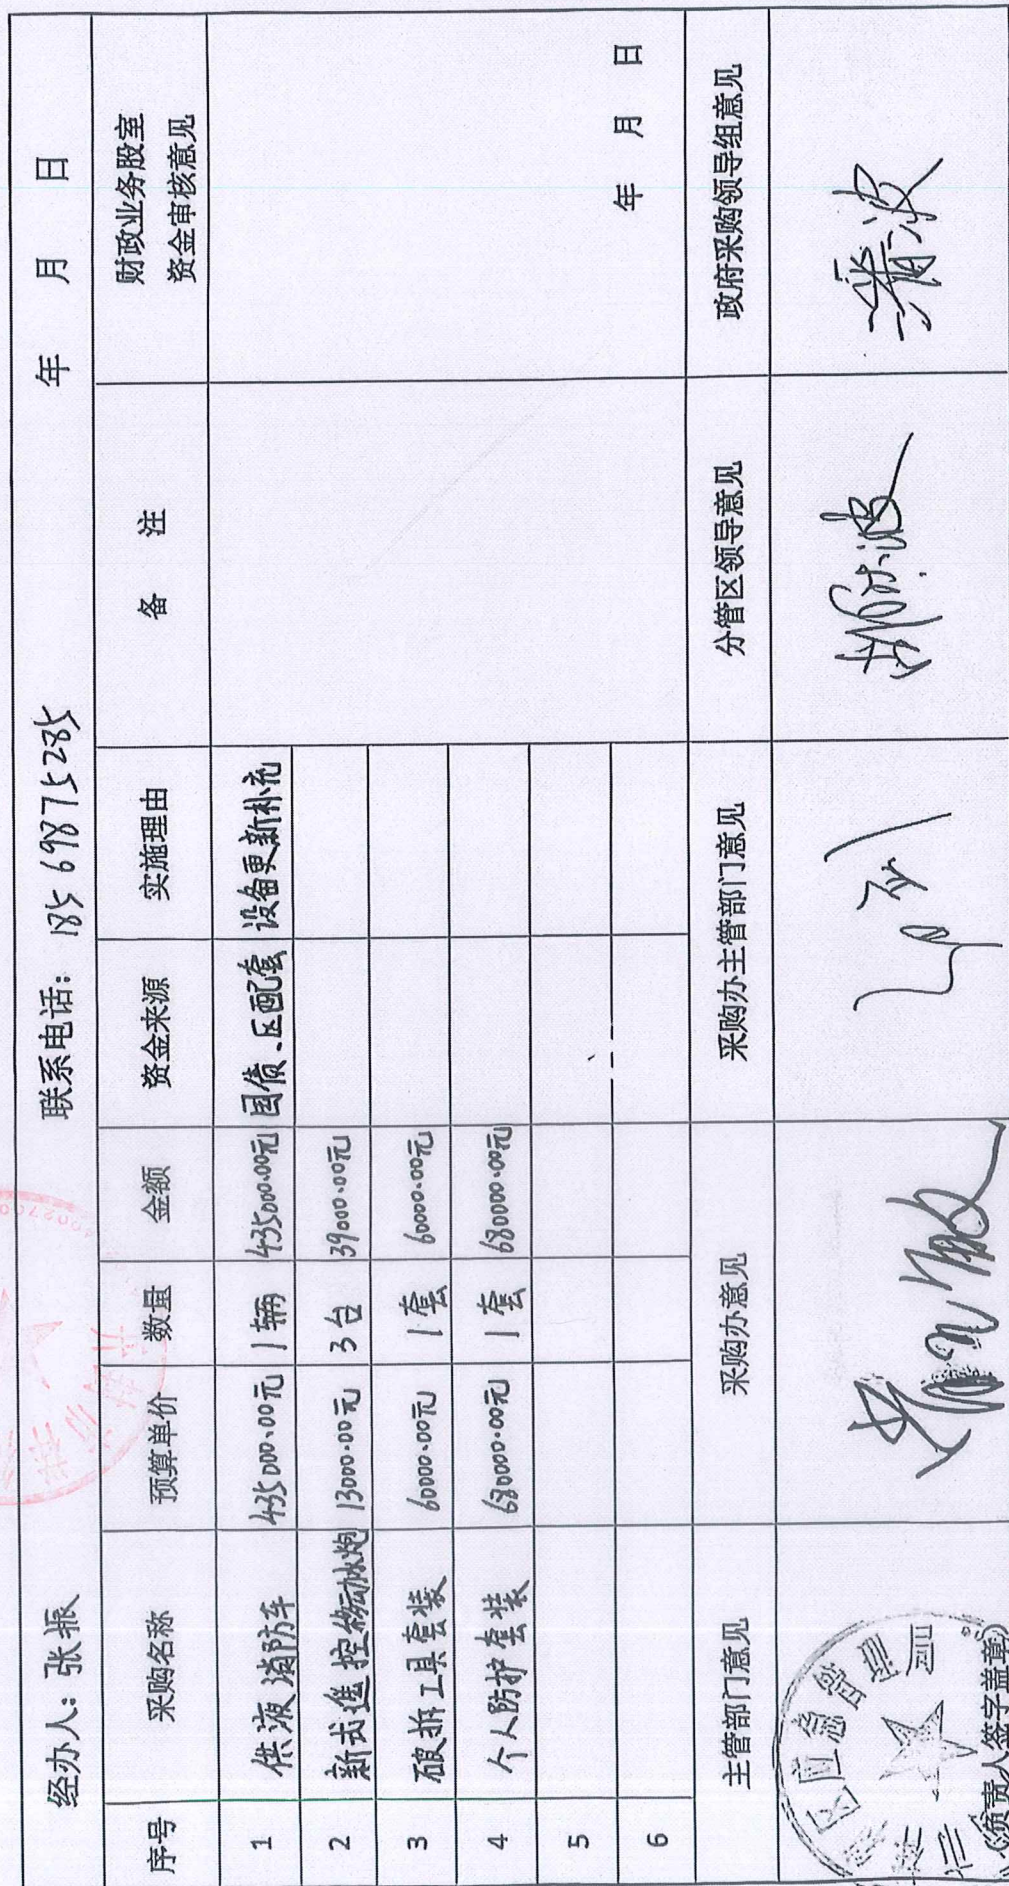 经办人：张振 联系电话：185 69875285 年 月 日
序号 采购名称 预算单价 数量 金额 资金来源 实施理由 备 注 财政业务股室
资金审核意见
1 供液消防车 435000.00元 1辆 435000.00元 国债、区配套 设备更新补充
2 新式遥控移动水炮 13000.00元 3台 39000.00元
3 破拆工具套装 60000.00元 1套 60000.00元
4 个人防护套装 680000.00元 1套 680000.00元
5
6 年 月 日
主管部门意见 采购办意见 采购办主管部门意见 分管区领导意见 政府采购领导组意见
区应急管理局
（负责人签字盖章）